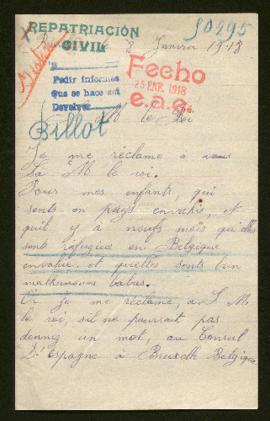 REPATRIACIÓN
CIVIL
50295
le 8 Janvier 1918
Pedir informes
Que se hace acá
Devolver
Fecho
25 ENE. 1918
e.a.e.
Billot
A S M le Roi
Je me réclame a vous
Sa M. le roi.
Pour mes enfants, qui
sonts en pays envahis, et
quil y a neufs mois qu'elles
sonts réfugiées en Belgique
envahie et quelles sonts bien
malheureuses
Or Je me réclame, a S. M
le roi, sil ne pourrait pas
donner un mot, au Consul
D'Espagne à Bruxelle Belgique